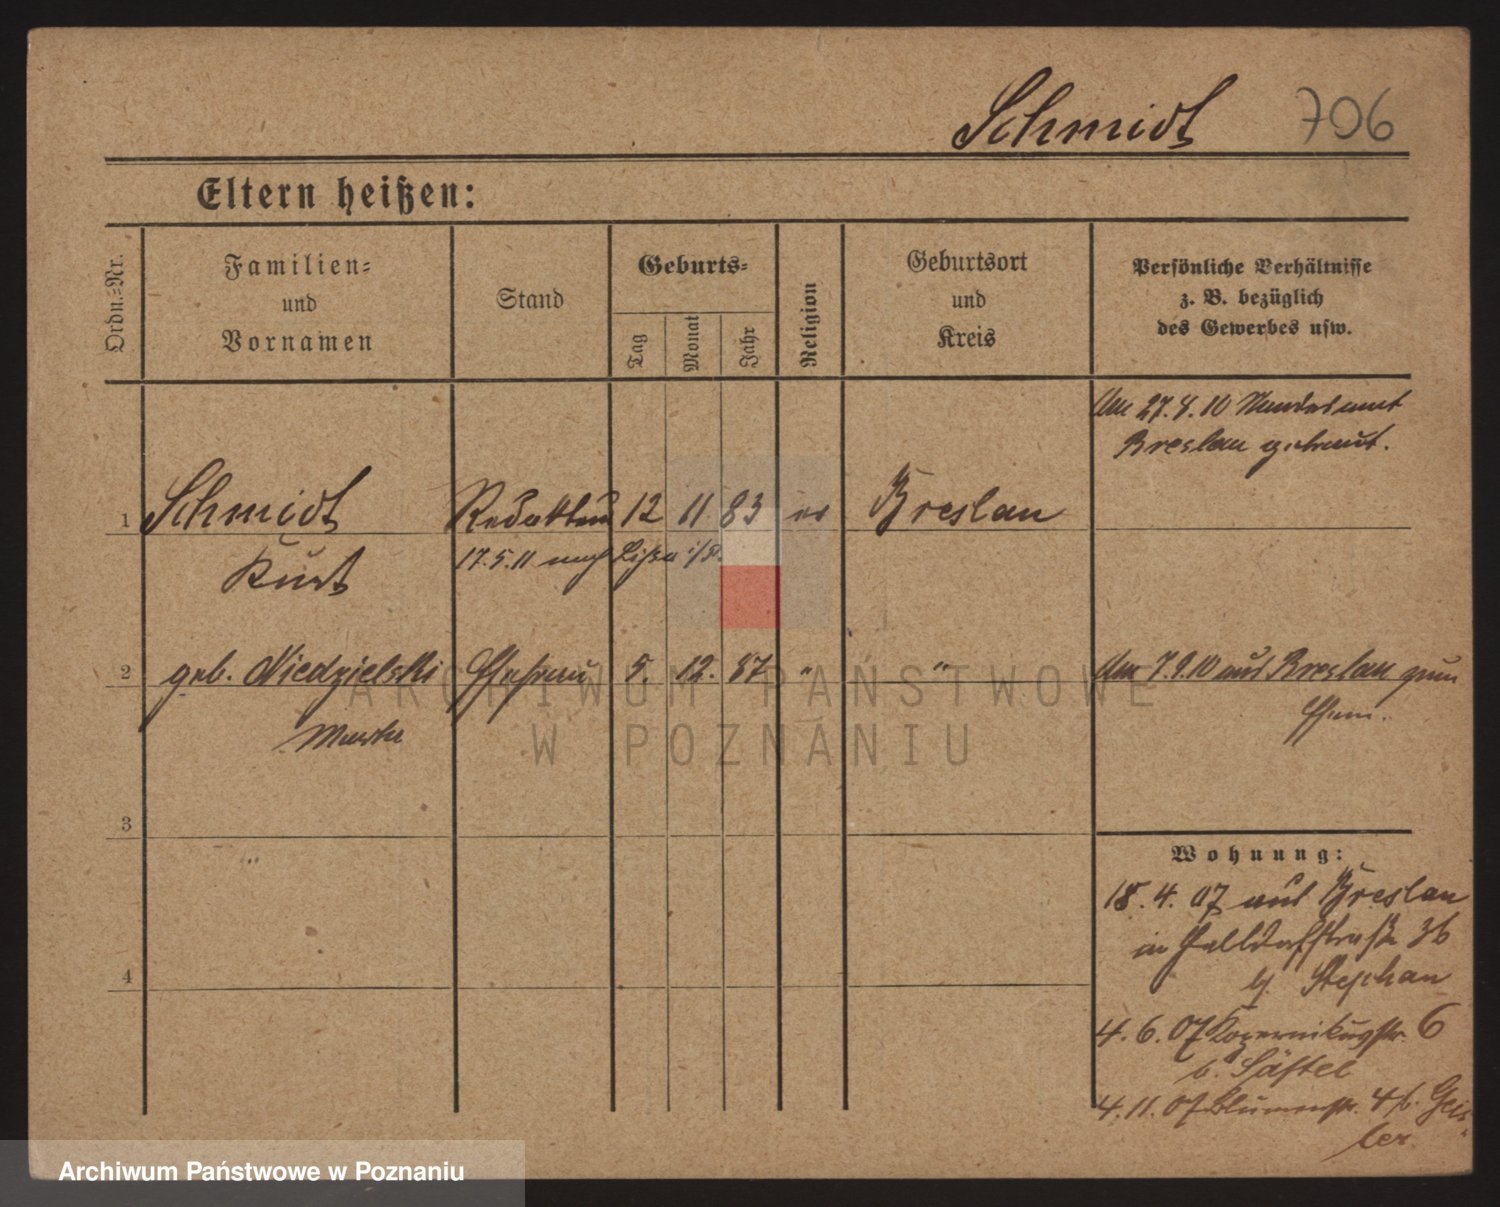 Schmidt 706
Eltern heißen:
Ordn.-Nr.
Familien-
und
Vornamen
Stand
Geburts-
Tag
Monat
Jahr
Religion
Geburtsort
und
Kreis
Persönliche Verhältnisse
z. B. bezüglich
des Gewerbes usw.
Am 27.8.10 Standesamt
Breslau getraut.
1 Schmidt Redakteur 12 11 83 ev Breslau
Kurt
17.5.11 nach Lissa i/P.
2 geb. Niedzielski Ehefrau 5. 12. 87 " "
Am 7.9.10 aus Breslau zum
Martha
3
4
Wohnung:
18.4.07 aus Breslau
in 36
b. Stephan
4.6.07 Kopernikusstr. 6
b. Säftel
4.11.07 Blumenstr. 4 b. Geis-
ler.
ARCHIWUM PAŃSTWOWE
W POZNANIU
Archiwum Państwowe w Poznaniu